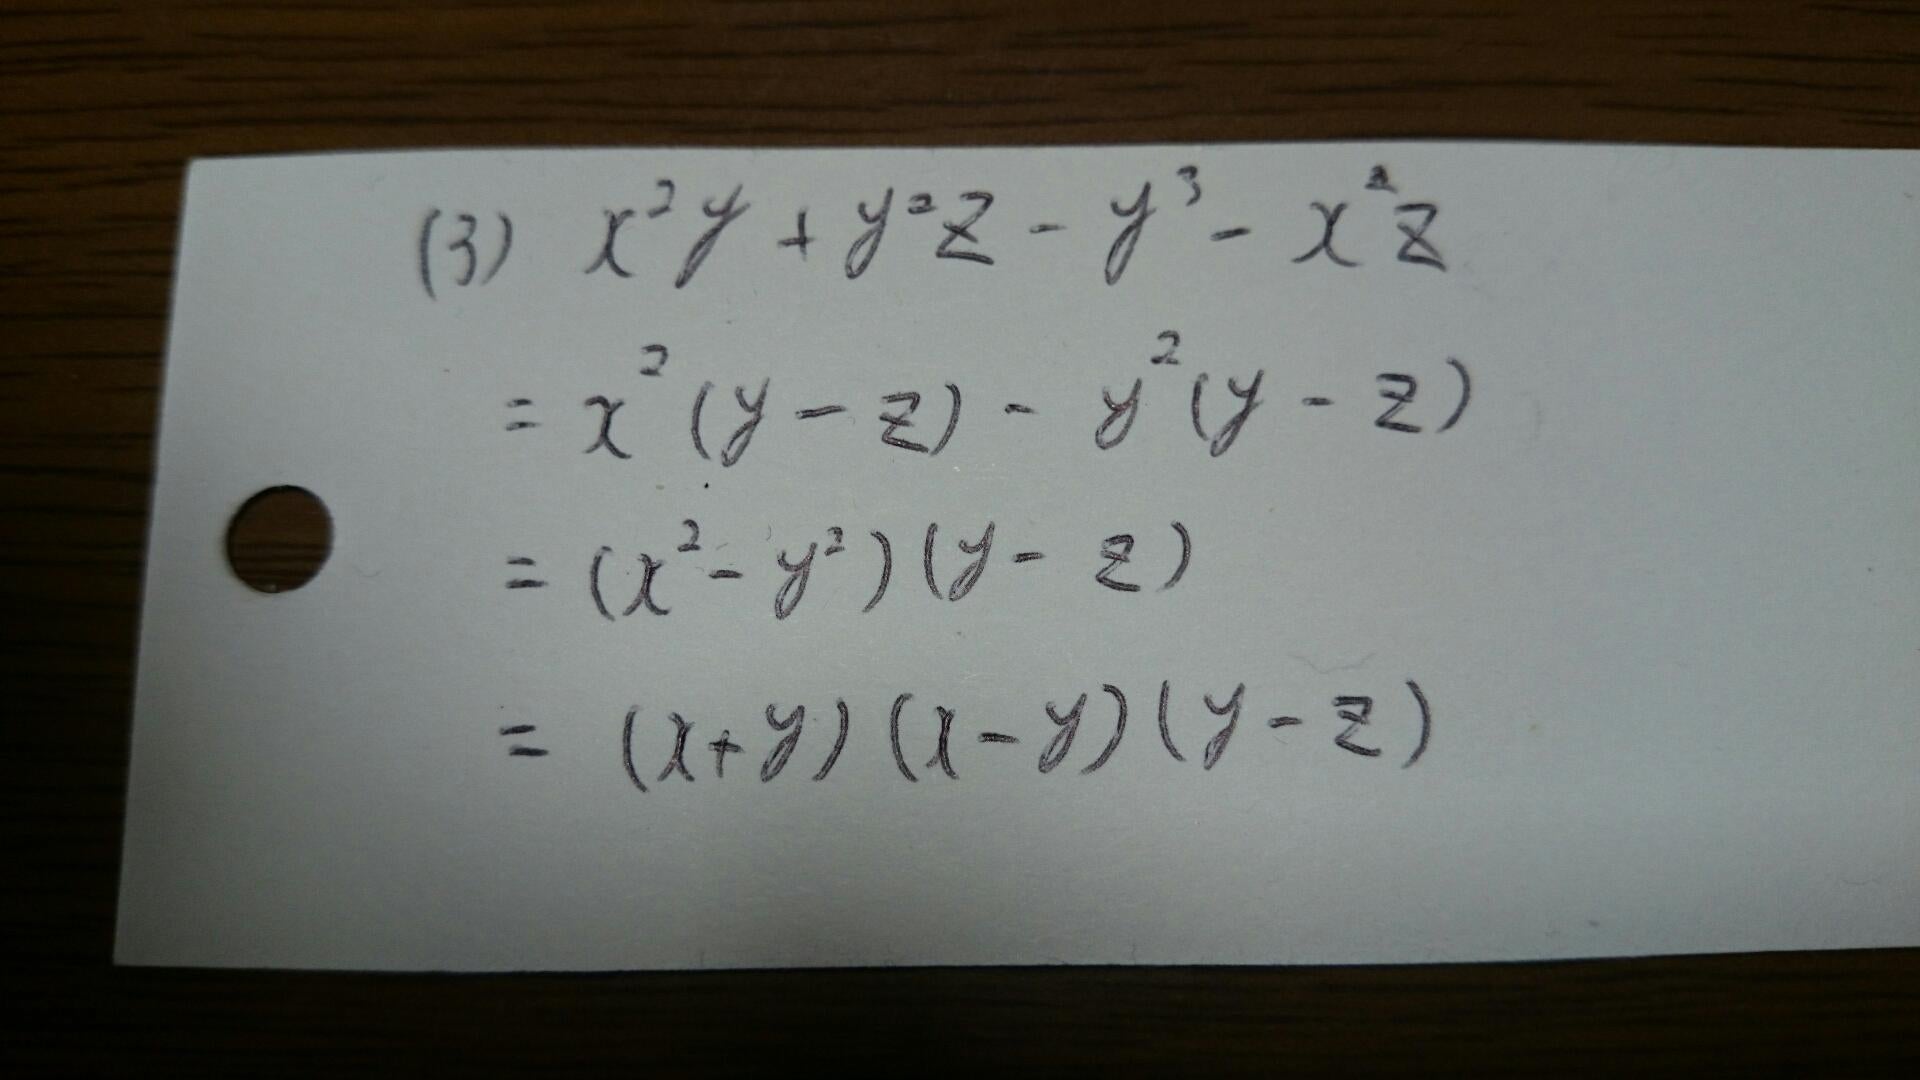 (3) x²y + y²z - y³ - x²z
= x²(y - z) - y²(y - z)
= (x² - y²)(y - z)
= (x+y)(x-y)(y-z)